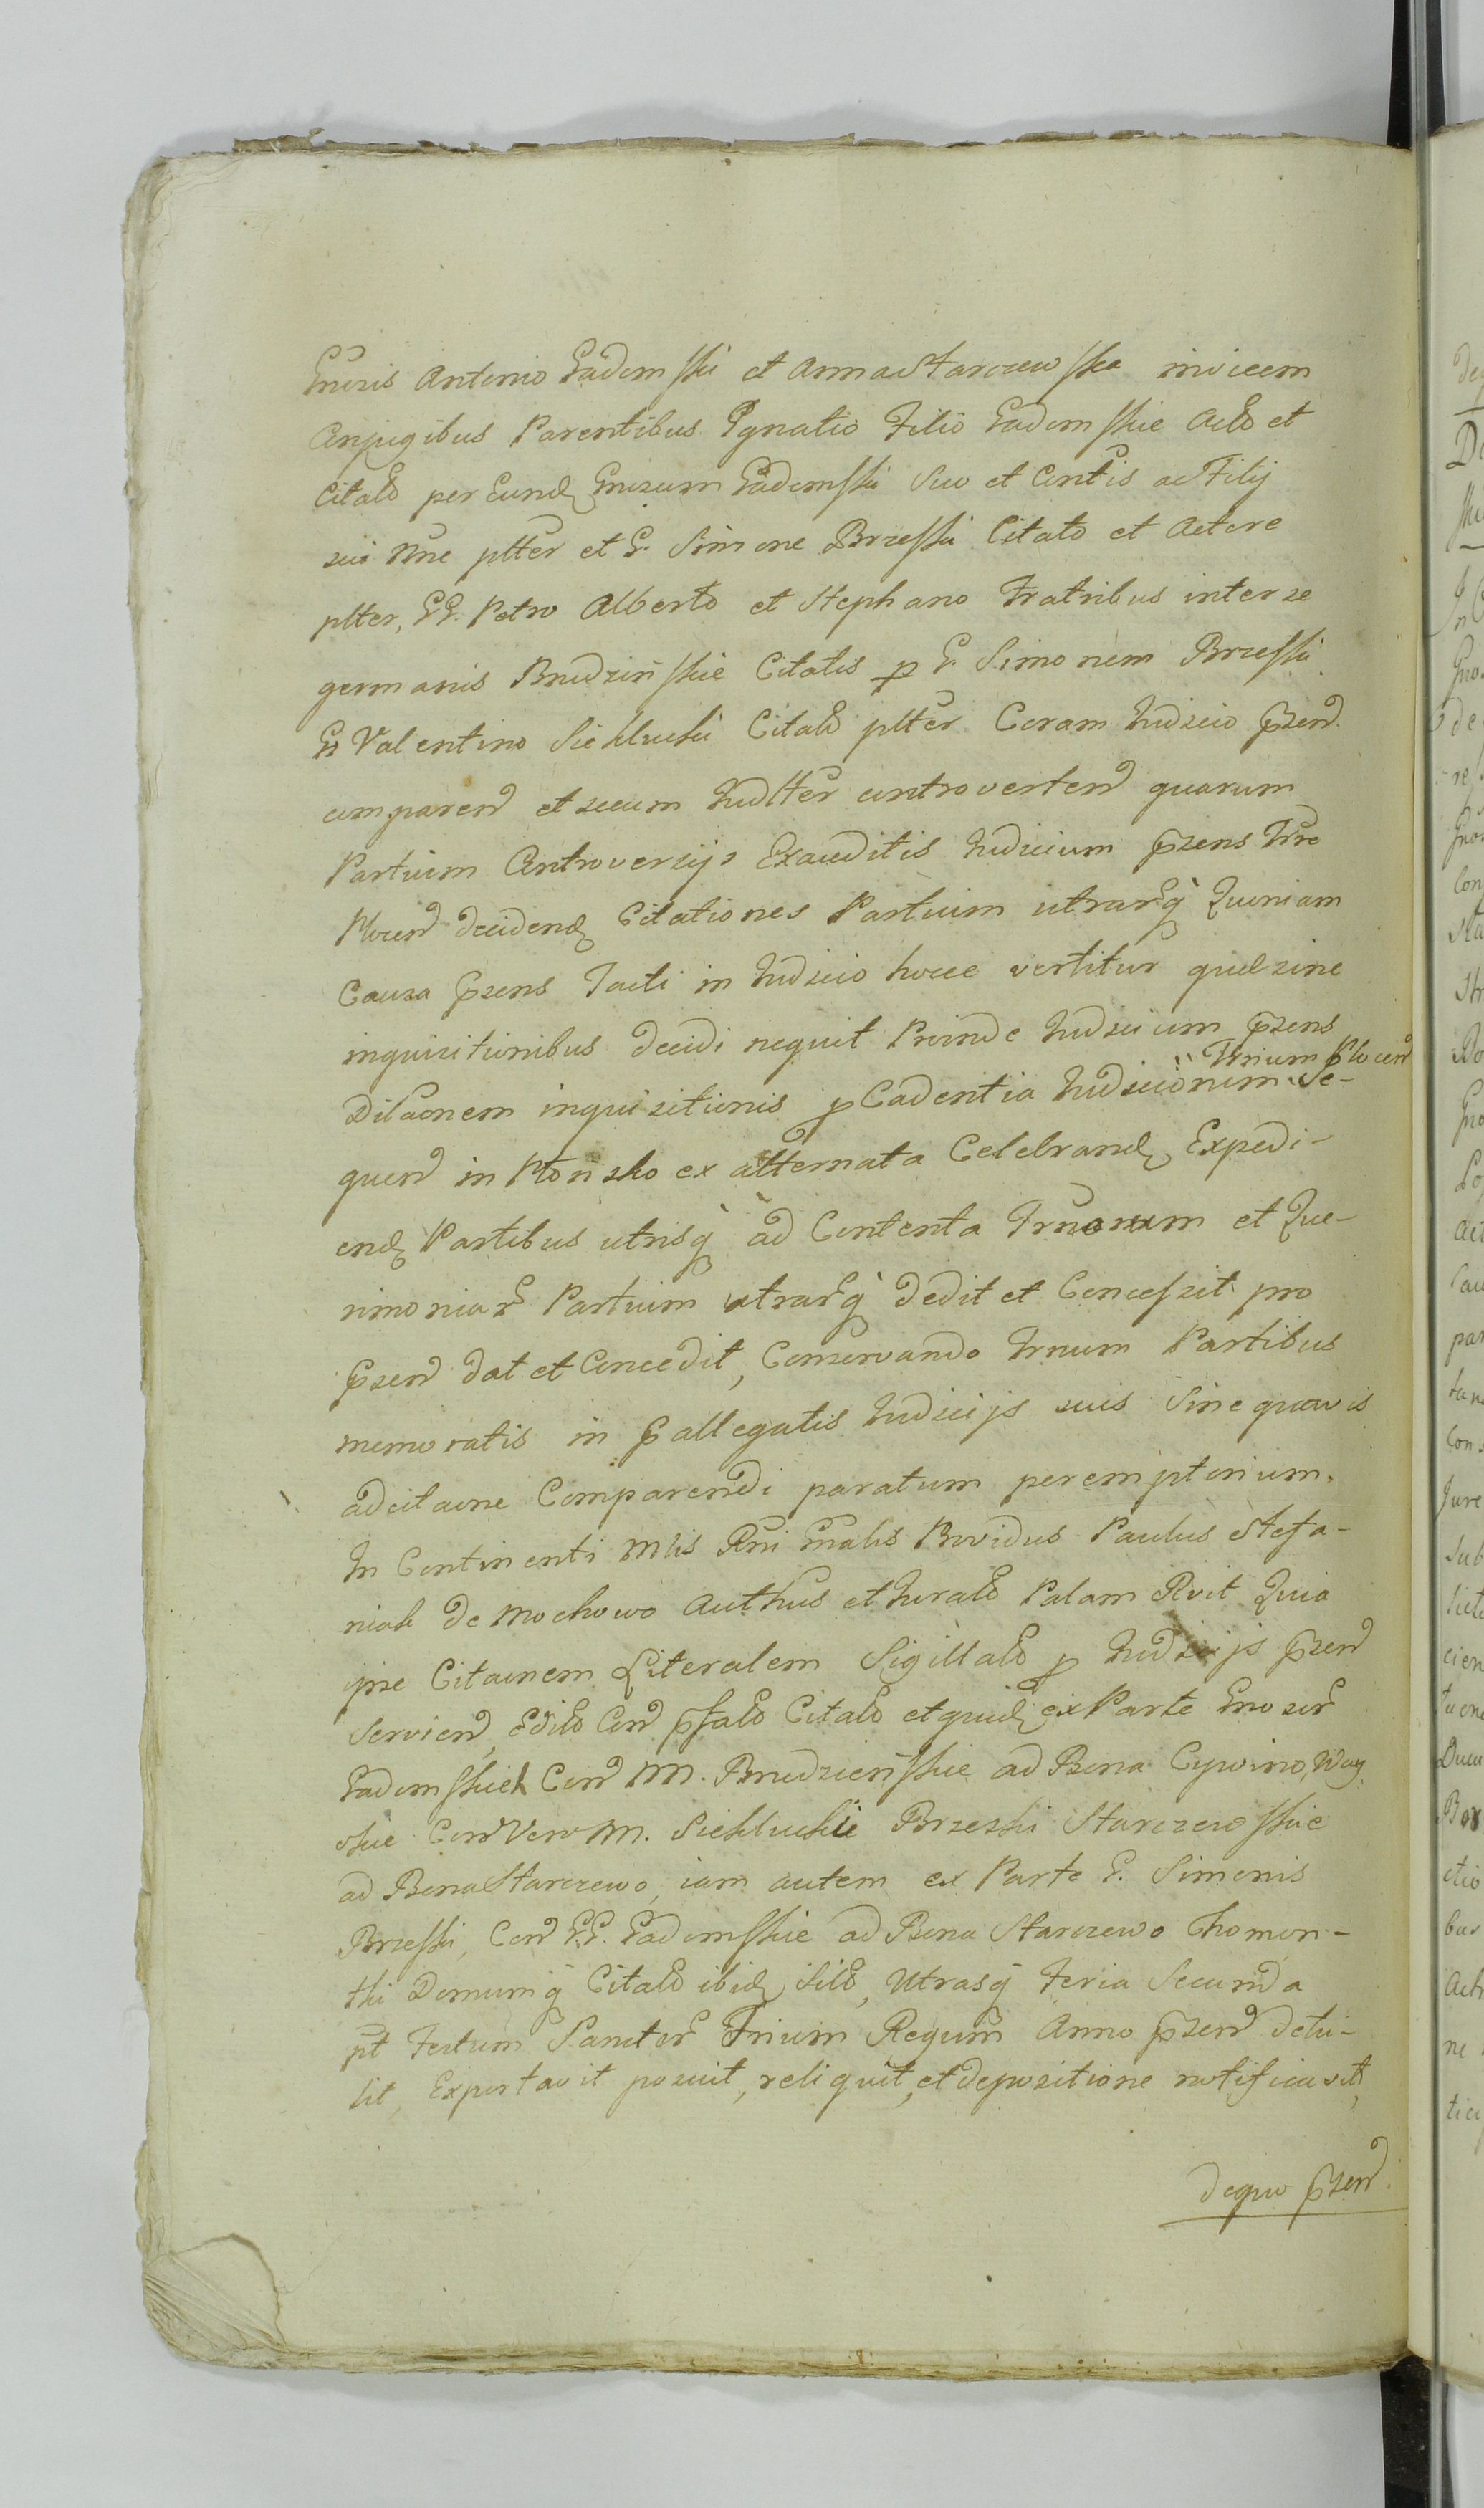 Gnosis Antonio Gadomski et Anna Starczewska invicem
Conjugibus Parentibus Ignatio Filio Gadomskie Acto et
Citato per Eund Gnosum Gadomski Suo et Contis ac Filij
sui Nne pltter et G. Simone Brzeski Citato et Actore
pltter, GG. Petro Alberto et Stephano Fratribus inter se
germanis Brudzinskie Citatis p G. Simonem Brzeski
G Valentino Sieklucki Citato pltter Coram Judicio przend
comparend et secum Judltter controvertend quarum
Partium Controversijs Exauditis Judicium przens Trre
Plocen decidend Citationes Partium utrarq Quoniam
Causa przens Facti in Judicio hocce vertitur quae sine
inquisitionibus decidi nequit Proinde Judicium przens
Dilaonem inquisitionis p Cadentia Judiciorum Trrium Plocen Se-
quend in Plonsko ex alternata Celebrand Expedi-
end Partibus utrisq ad Contenta Trnorum et Que-
rimoniar Partium utrarq dedit et Concessit pro
przend dat et Concedit, Conservando Trnum Partibus
memoratis in pallegatis Judicijs suis Sine quavis
adcitaone Comparendi paratum peremptorium.
In Continenti Mlis Rni Gnalis Providus Paulus Stefa-
niak de Mochowo Authus et Jurato Palam Rvit Quia
ipse Citaonem Literalem Sigillato p Judicijs przend
Serviend, Edito Con pfato Citato et quid ex Parte Gnosor
Gadomskich Con M. Brudzienskie ad Bona Cywino, Woy
skie Con Vero M. Siekluckie Brzeski Starczewskie
ad Bona Starczewo, iam autem ex Parte G. Simonis
Brzeski, Con GG. Gadomskie ad Bona Starczewo Chomen-
thi Domumq Citato ibid Sito, Utrasq Feria Secunda
pt Festum Sanctor Trium Regum Anno przend detu-
lit, Exportavit posuit, reliquit, et depositione notificavit,
dequo przend.